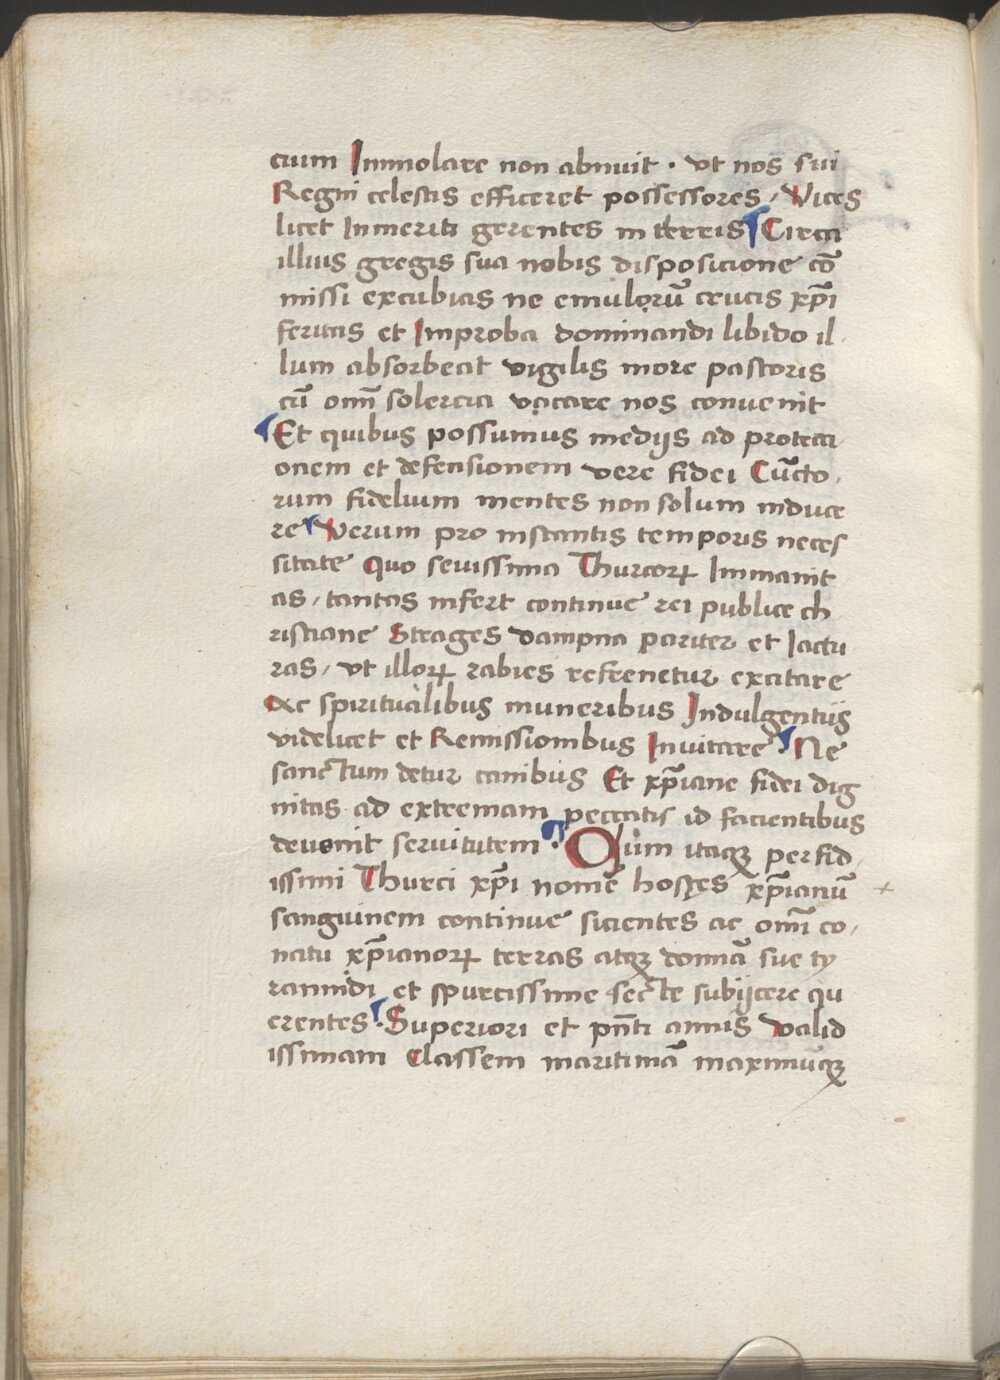 cium Immolare non abnuit · vt nos sui
Regni celestis efficeret possessores / Vices
licet Inmeriti gerentes in terris ¶ Circa
illius gregis sua nobis disposicione cō
missi excubias ne emulorū crucis xp̄i
feritas et Improba dominandi libido il-
lum absorbeat vigilis more pastoris
cū omī solercia vacare nos conuenit
¶ Et quibus possumus medijs ad protecci-
onem et defensionem vere fidei Cūcto-
rum fidelium mentes non solum induce
re ¶ Verum pro instantis temporis neces
sitate Quo seuissima Thurcoꝝ Immanit
as / tantas infert continue rei publice ch
ristiane Strages dampna pariter et Iactu
ras / vt illoꝝ rabies refrenetur excitare
Ac spiritualibus muneribus Indulgentijs
videlicet et Remissionibus Inuitare · ¶ Ne
sanctum detur canibus Et xp̄iane fidei dig
nitas ad extremam peccatis id facientibus
deuenit seruitutem · ¶ Qum itaqꝫ perfid
issimi Thurci xp̄i nomē hostes xp̄ianū
sanguinem continue sicientes ac omī co-
natu xp̄ianoꝝ terras atqꝫ domnā sue ty
rannidi et spurcissime secte subijcere qu
erentes · ¶ Superiori et pn̄ti annis valid
issimam Classem maritimā maximūqꝫ